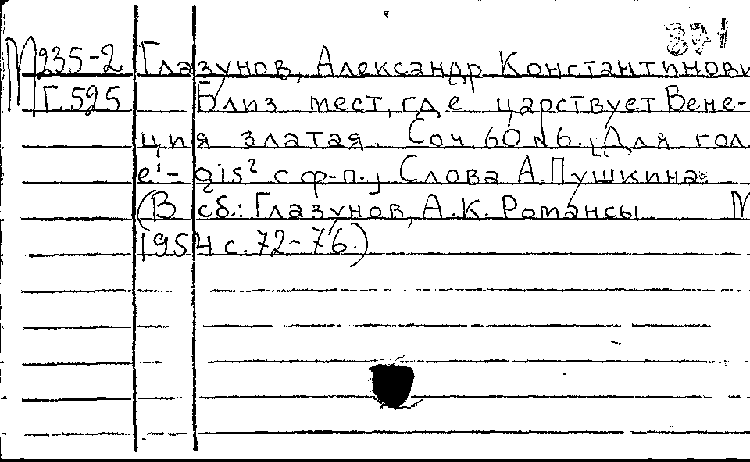 391
М235-2 Глазунов, Александр Константинови
Г.595 Близ мест, где царствует Вене-
ция златая. Соч 60 №6. Для гол.
e¹- gis² с ф-п.; Слова А.Пушкина.
(В сб.: Глазунов, А.К. Романсы М
1954 с. 72-76.)